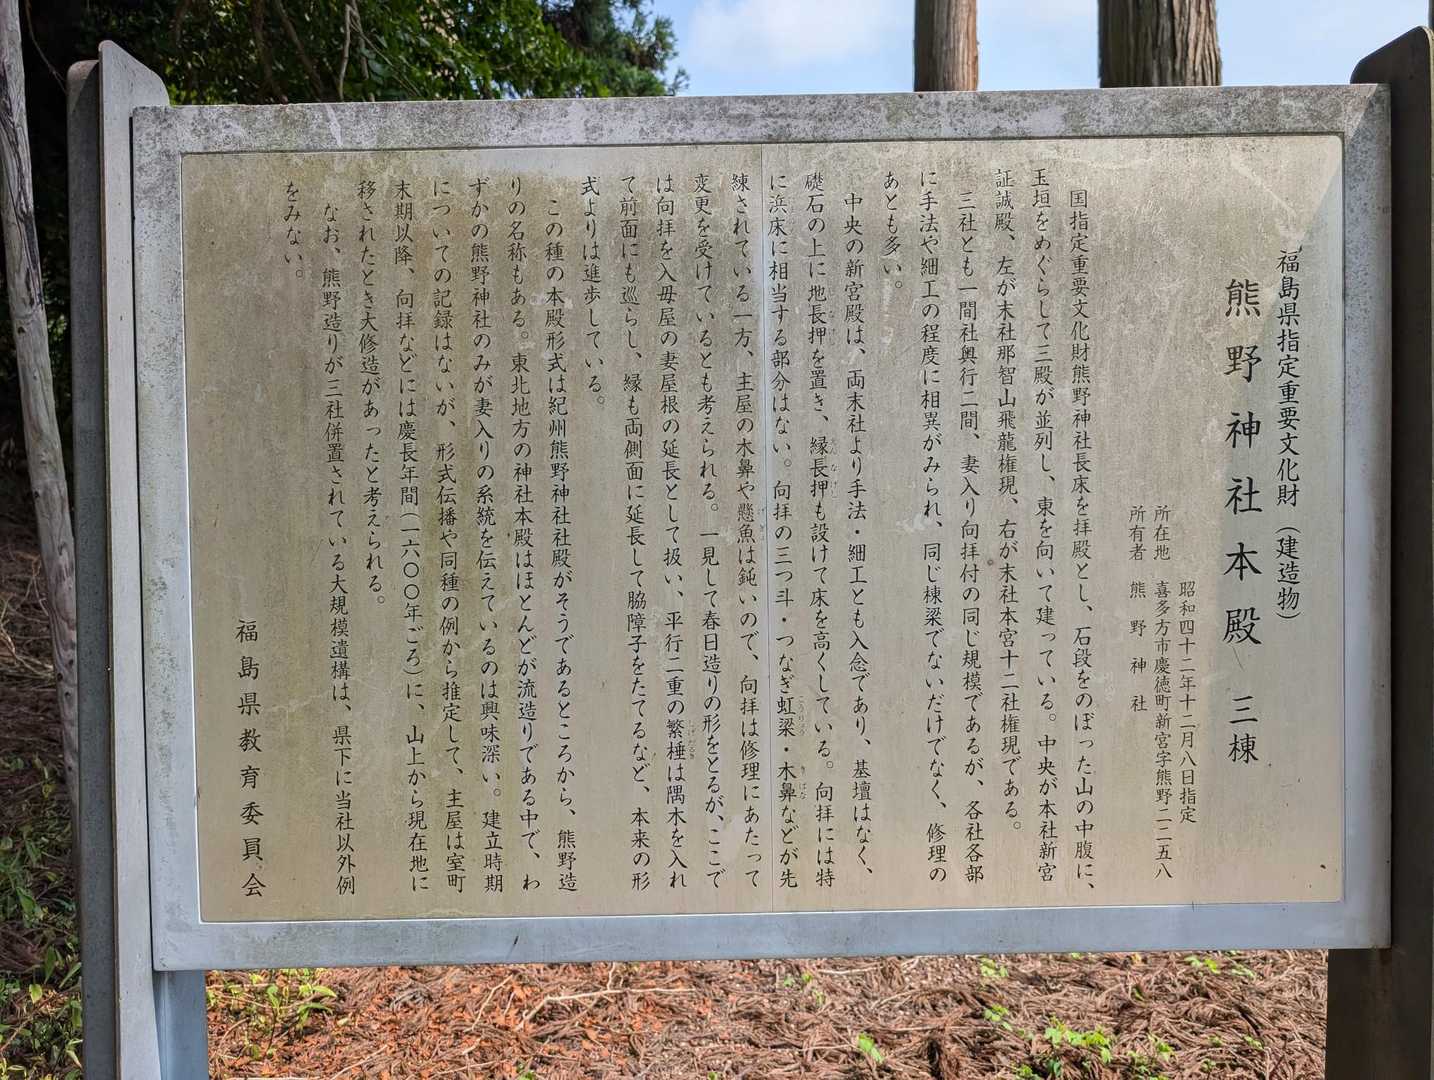 福島県指定重要文化財（建造物）
熊野神社本殿 三棟
昭和四十二年十二月八日指定
所在地 喜多方市慶徳町新宮字熊野二二五八
所有者 熊野神社
国指定重要文化財熊野神社長床を拝殿とし、石段をのぼった山の中腹に、
玉垣をめぐらして三殿が並列し、東を向いて建っている。中央が本社新宮
証誠殿、左が末社那智山飛龍権現、右が末社本宮十二社権現である。
三社とも一間社奥行二間、妻入り向拝付の同じ規模であるが、各社各部
に手法や細工の程度に相異がみられ、同じ棟梁でないだけでなく、修理の
あとも多い。
中央の新宮殿は、両末社より手法・細工とも入念であり、基壇はなく、
礎石の上に地長押を置き、縁長押も設けて床を高くしている。向拝には特
に浜床に相当する部分はない。向拝の三つ斗・つなぎ虹梁・木鼻などが先
練されている一方、主屋の木鼻や懸魚は鈍いので、向拝は修理にあたって
変更を受けているとも考えられる。一見して春日造りの形をとるが、ここで
は向拝を入母屋の妻屋根の延長として扱い、平行二重の繁棰は隅木を入れ
て前面にも巡らし、縁も両側面に延長して脇障子をたてるなど、本来の形
式よりは進歩している。
この種の本殿形式は紀州熊野神社社殿がそうであるところから、熊野造
りの名称もある。東北地方の神社本殿はほとんどが流造りである中で、わ
ずかの熊野神社のみが妻入りの系統を伝えているのは興味深い。建立時期
についての記録はないが、形式伝播や同種の例から推定して、主屋は室町
末期以降、向拝などには慶長年間（一六〇〇年ごろ）に、山上から現在地に
移されたとき大修造があったと考えられる。
なお、熊野造りが三社併置されている大規模遺構は、県下に当社以外例
をみない。
福島県教育委員会